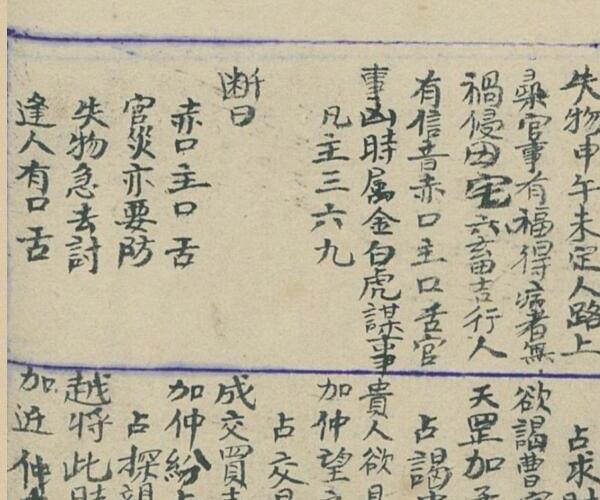 失物申午未定人路上
尋官事有福得病者無
禍侵田宅六畜吉行人
有信音赤口主口舌官
事凶時属金白虎謀事
凡主三六九
断曰
赤口主口舌
官災亦要防
失物急去討
逢人有口舌
占求
欲謁曹
天罡加
占謁
貴人欲見
加仲望
占交
成交買
加仲紛
占探親
越將此時
加近仲